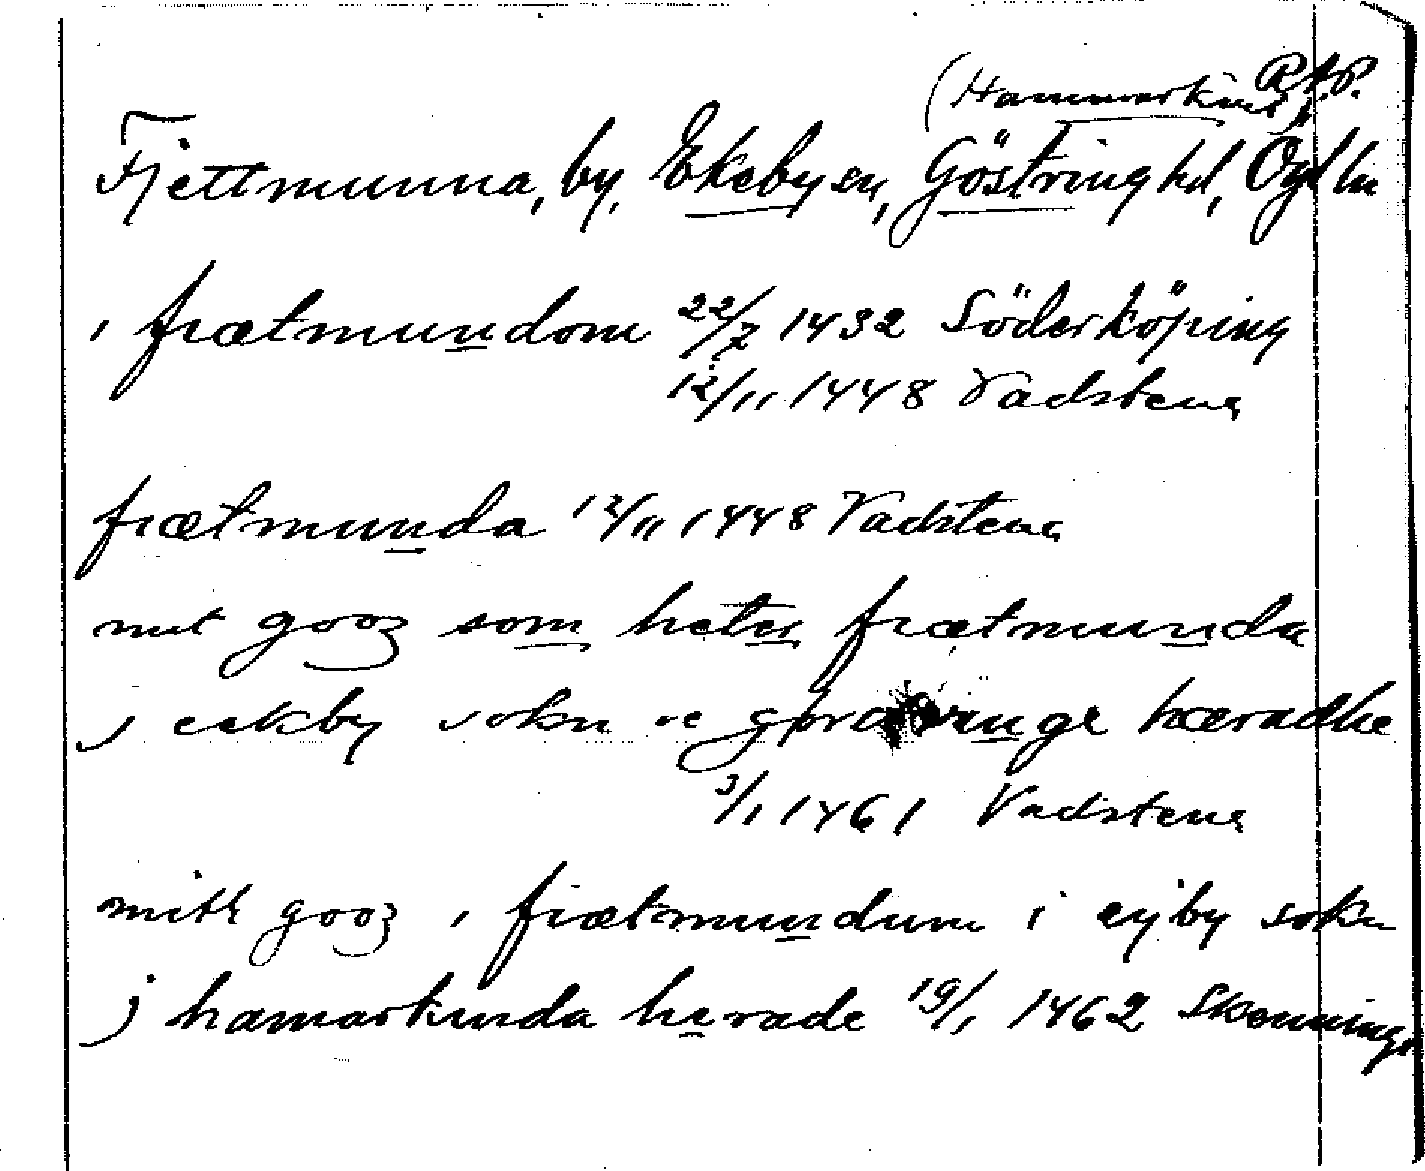 (Hammarkind) R.A.P.
Fjettmunna, by, Ekeby sn, Göstring hd, Ögl län
i fiætmundom 22/7 1432 Söderköping
12/11 1448 Vadstena
fiætmunda 12/11 1448 Vadstena
mit gooz som heter fiætmunda
j eekby sokn oc hæradhe
3/1 1461 Vadstena
mitt gooz i fiætmundum i eyby sokn
j hamarkinda herade 19/1 1462 Skenninge